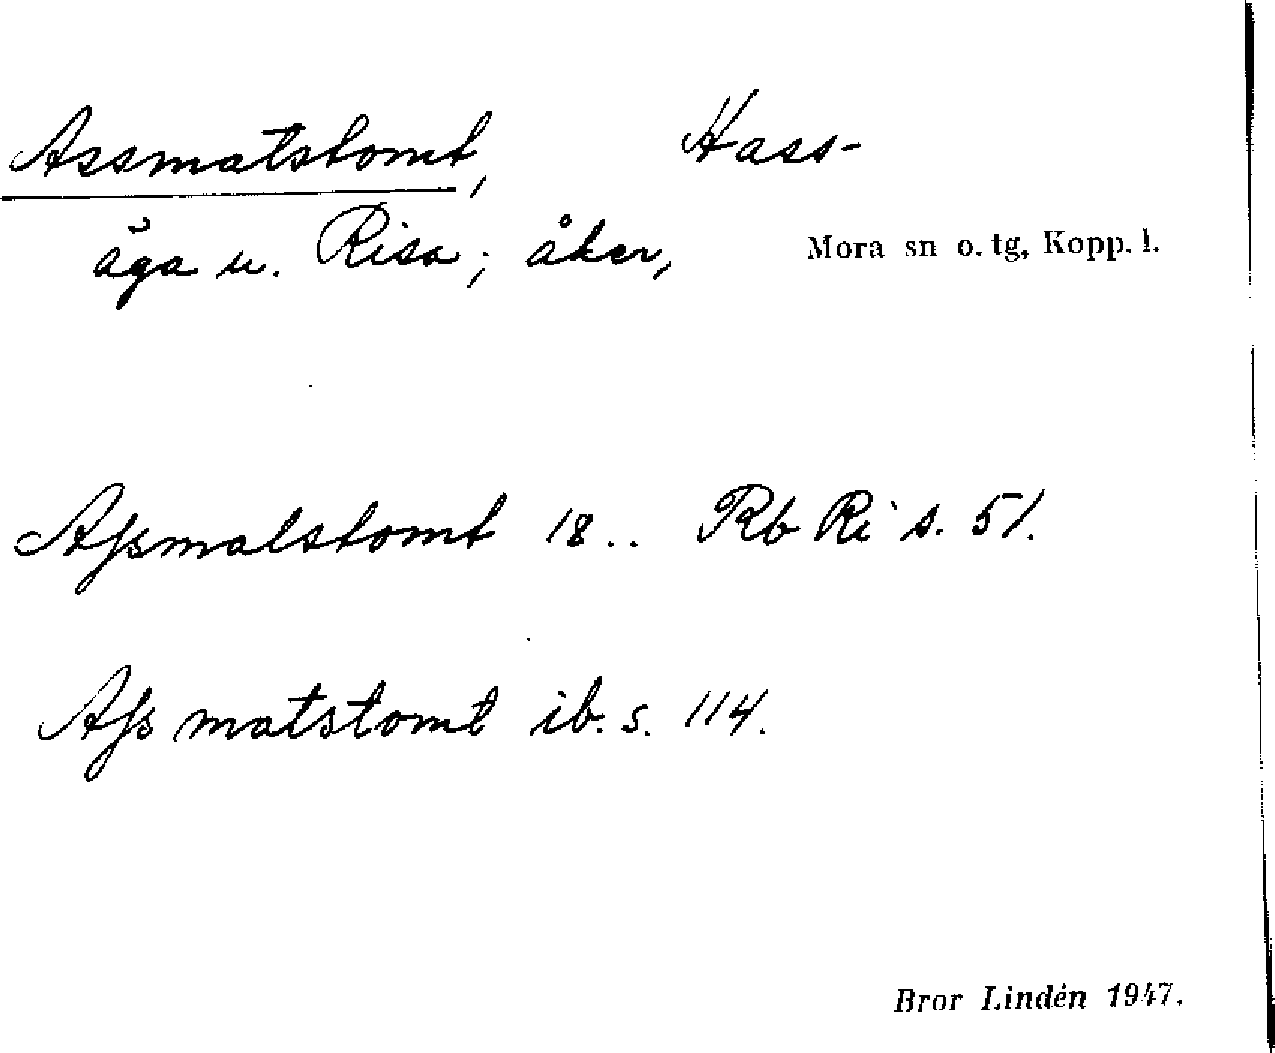 Assmatstomt, Hass-
äga u. Risa; åker, Mora sn o. tg, Kopp. l.
Assmalstomt 18.. Rb Ri s. 51.
Ass matstomt ib. s. 114.
Bror Lindén 1947.